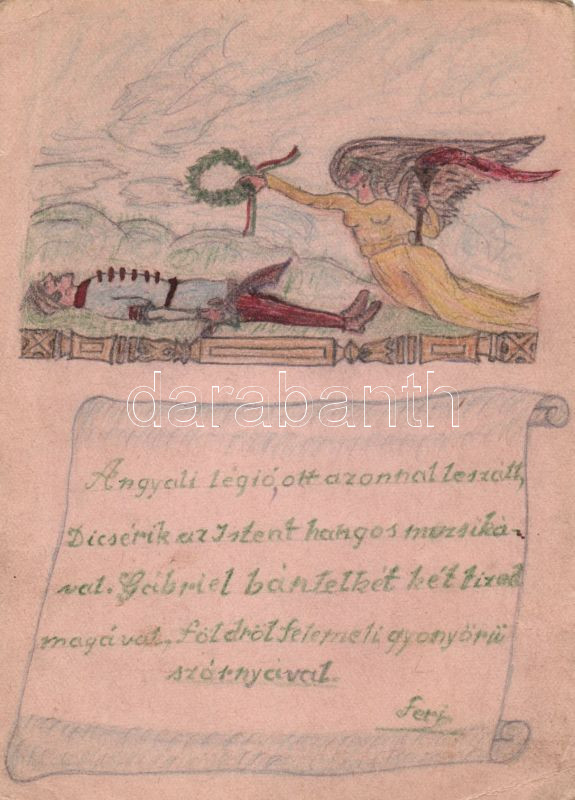 darabanth
Angyali légió, ott azonnal leszáll,
Dicsérik az Istent hangos muzsiká-
val. Gábriel bántelkét két tized
magával, földröl felemeli gyonyörü
szárnyával.
Feri